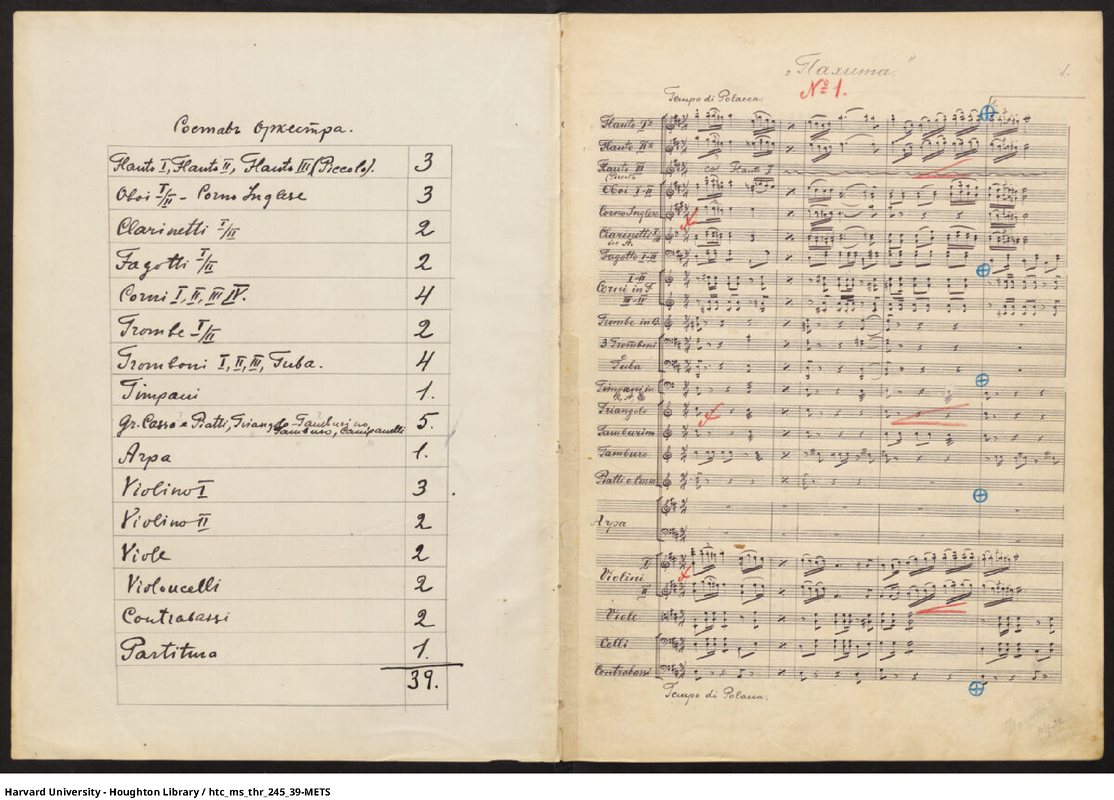 Составъ оркестра.
Flauto I, Flauto II, Flauto III (Piccolo). 3
Oboi I/II – Corno Inglese 3
Clarinetti I/II 2
Fagotti I/II 2
Corni I, II, III, IV. 4
Trombe I/II 2
Tromboni I, II, III, Tuba. 4
Timpani 1.
Gr. Casso e Piatti, Triangolo - Tamburino, Tamburo, Campanelli 5.
Arpa 1.
Violino I 3.
Violino II 2
Viole 2
Violoncelli 2
Contrabassi 2
Partitura 1.
39.
„Пахита."
1.
Tempo di Polacca.
№ 1.
Flauto I
Flauto II
Flauto III
(Piccolo
col Flauto I
Oboi I-II
Corno Inglese
Clarinetti I/II
in A.
Fagotto I-II
I-II
Corni in F
III-IV
Trombe in
3 Tromboni
e
Tuba
Timpani in
Triangolo
Tamburin
Tamburo
Piatti e Casso
Arpa
I
Violini
II
Viole
Celli
Contrabassi
Tempo di Polacca.
Harvard University - Houghton Library / htc_ms_thr_245_39-METS